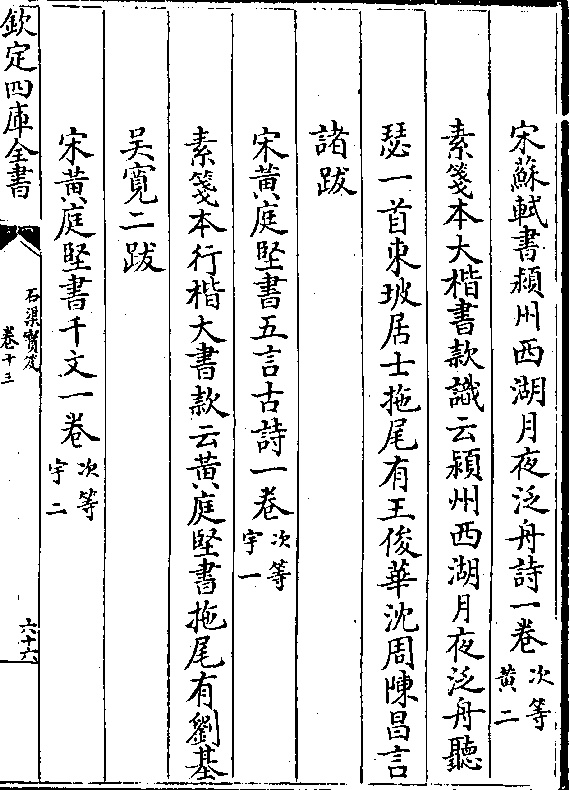 宋蘇軾書潁州西湖月夜泛舟詩一卷次等黃二
素箋本大楷書款識云潁州西湖月夜泛舟聽
瑟一首東坡居士拖尾有王俊華沈周陳昌言
諸跋
宋黃庭堅書五言古詩一卷次等宇一
素箋本行楷大書款云黃庭堅書拖尾有劉基
吳寬二跋
宋黃庭堅書千文一卷次等宇二
欽定四庫全書
石渠寶笈
卷十三
六十六